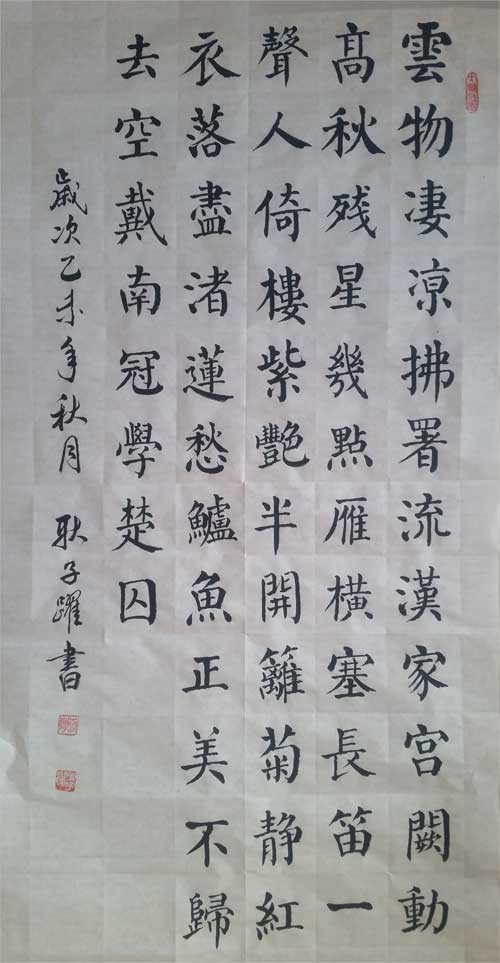 雲物凄凉拂署流漢家宫闕動
髙秋残星幾點雁横塞長笛一
聲人倚樓紫艷半開籬菊静紅
衣落盡渚蓮愁鱸魚正美不歸
去空戴南冠學楚囚
歲次乙未年秋月 耿子躍書